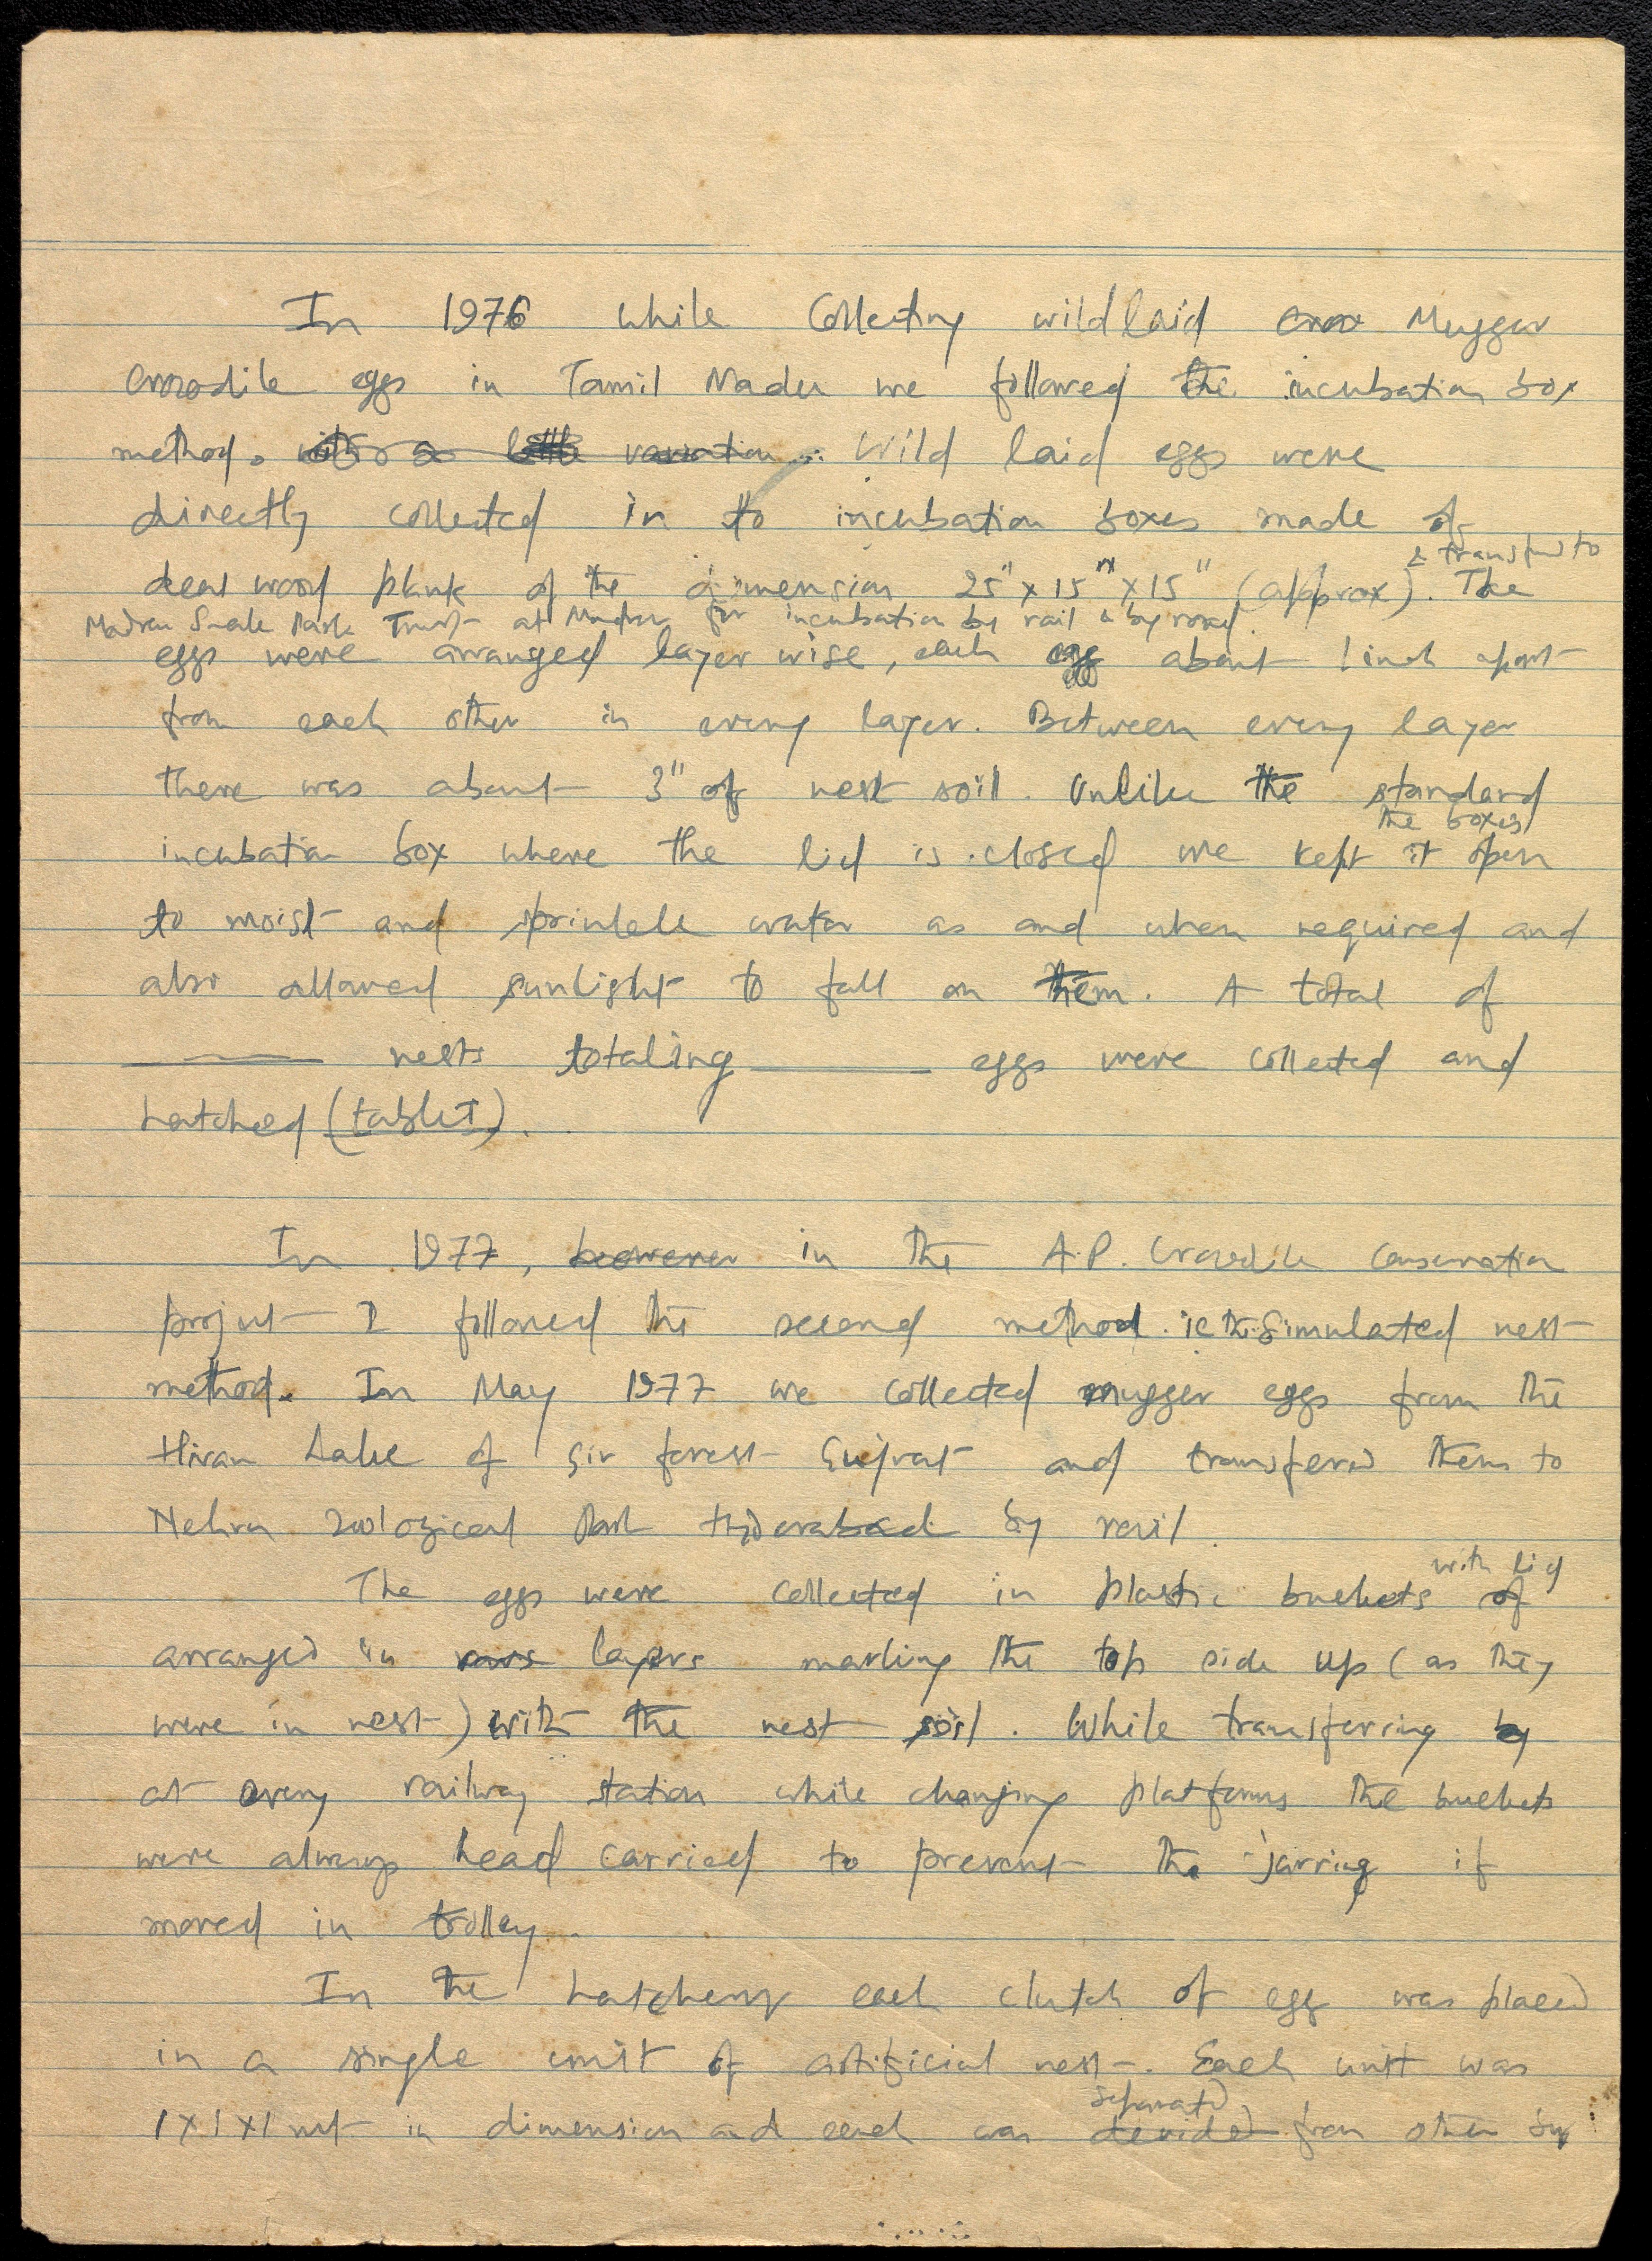 In 1976 while Collecting wild laid croc Mugger
crocodile eggs in Tamil Nadu we followed the incubation box
method. with a little variation. Wild laid eggs were
directly collected in to incubation boxes made of
& transfered to
deal wood plank of the dimension 25" x 15" x 15" (approx). The
Madras Snake Park Trust at Madras for incubation by rail & by road.
eggs were arranged layer wise, each egg about 1 inch apart
from each other in every layer. Between every layer
there was about 3" of nest soil. Unlike the standard
the boxes
incubation box where the lid is closed we kept it open
to moist and sprinkle water as and when required and
also allowed sunlight to fall on them. A total of
nests totaling eggs were collected and
hatched (table I).
In 1977, however in the A.P. Crocodile Conservation
project I followed the second method ie the Simulated nest
method. In May 1977 we collected mugger eggs from the
Hiran Lake of Gir forest Gujrat and transfered them to
Nehru Zoological Park Hyderabad by rail.
with lid
The eggs were collected in plastic buckets of
arranged in rows layers marking the top side up (as they
were in nest) with the nest soil. While transferring by
at every railway station while changing platforms the buckets
were always head carried to prevent the jarring if
moved in trolley.
In the hatchery each clutch of egg was placed
in a single unit of artificial nest. Each unit was
separated
1x1x1 mt in dimension and each was devided from other by